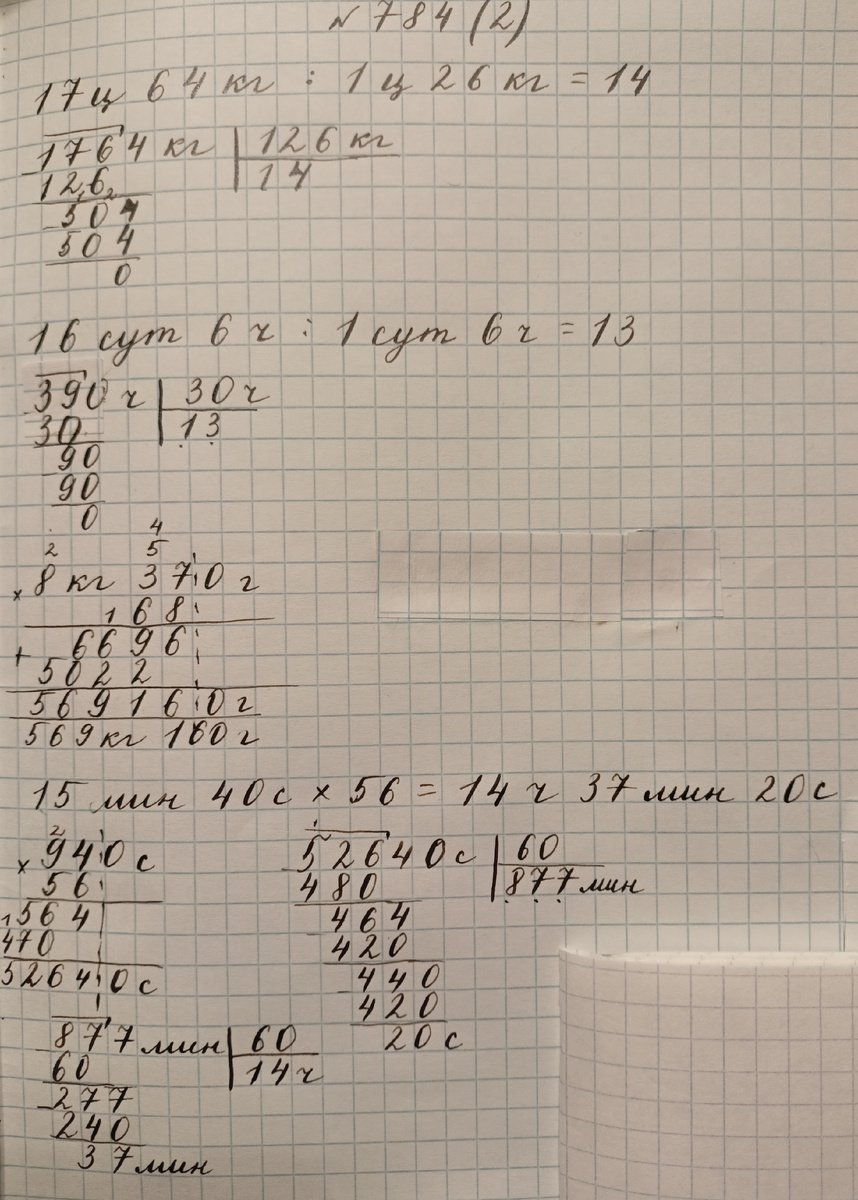 №784(2)
17ц 64кг : 1ц 26кг = 14
1764 кг | 126 кг
126 | 14
504
504
0
16 сут 6 ч : 1 сут 6 ч = 13
390 ч | 30 ч
30 | 13
90
90
0
4
2 5
× 8 кг 370 г
1 68
+ 6696
5022
569160 г
569 кг 160 г
15 мин 40с × 56 = 14 ч 37 мин 20с
2
× 940 с 52640с | 60
56 480 | 877 мин
1564 464
470 420
52640 с 440
420
877 мин | 60 20 с
60 | 14 ч
277
240
37 мин